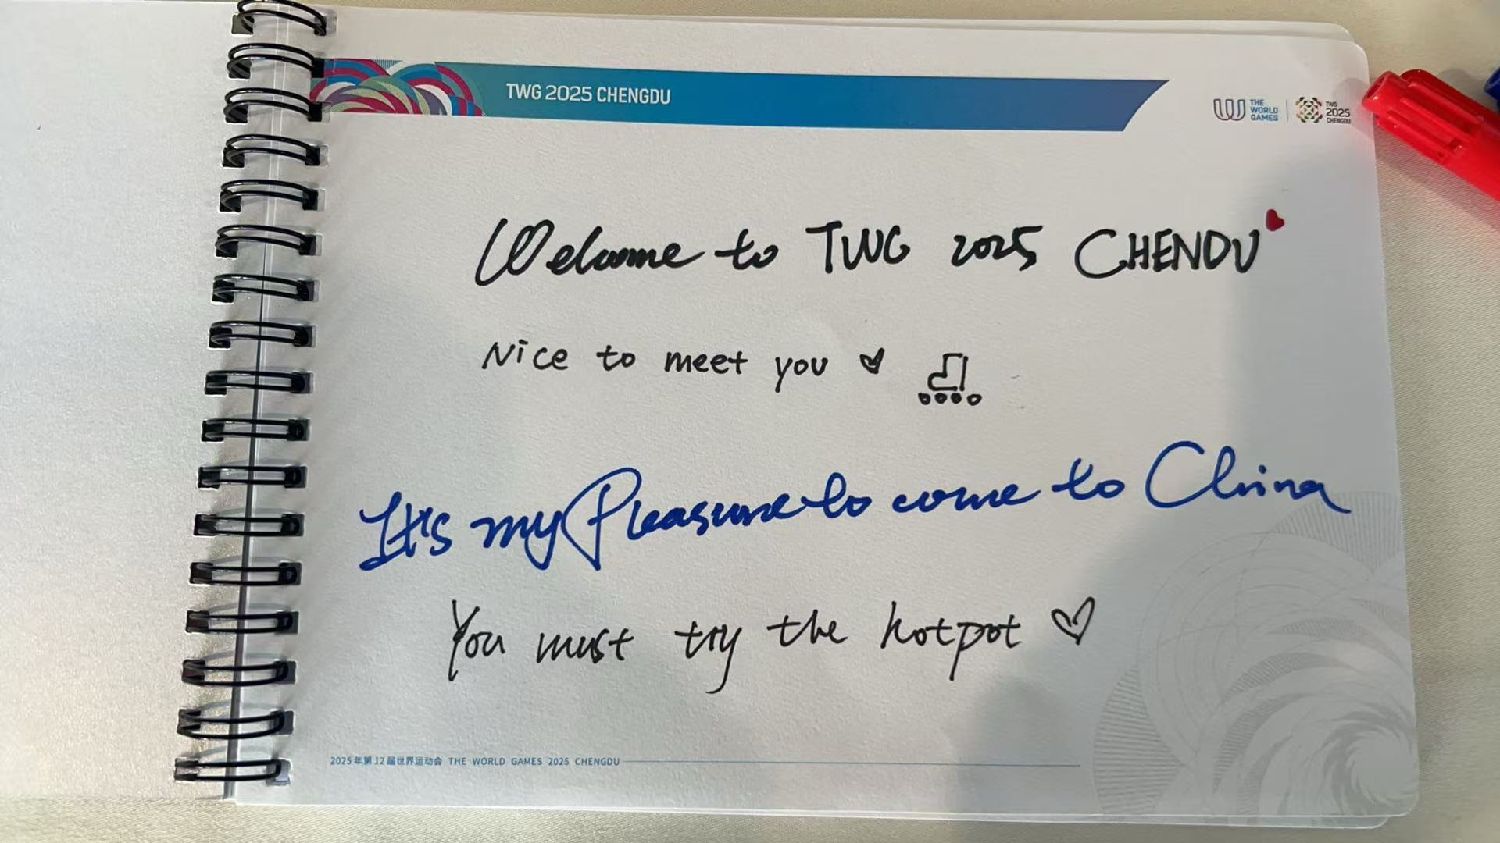 TWG 2025 CHENGDU
THE
WORLD
GAMES
TWG
2025
CHENGDU
Welcome to TWG 2025 CHENDU
Nice to meet you
It's my Pleasure to come to China
You must try the hotpot
2025年第12届世界运动会 THE WORLD GAMES 2025 CHENGDU